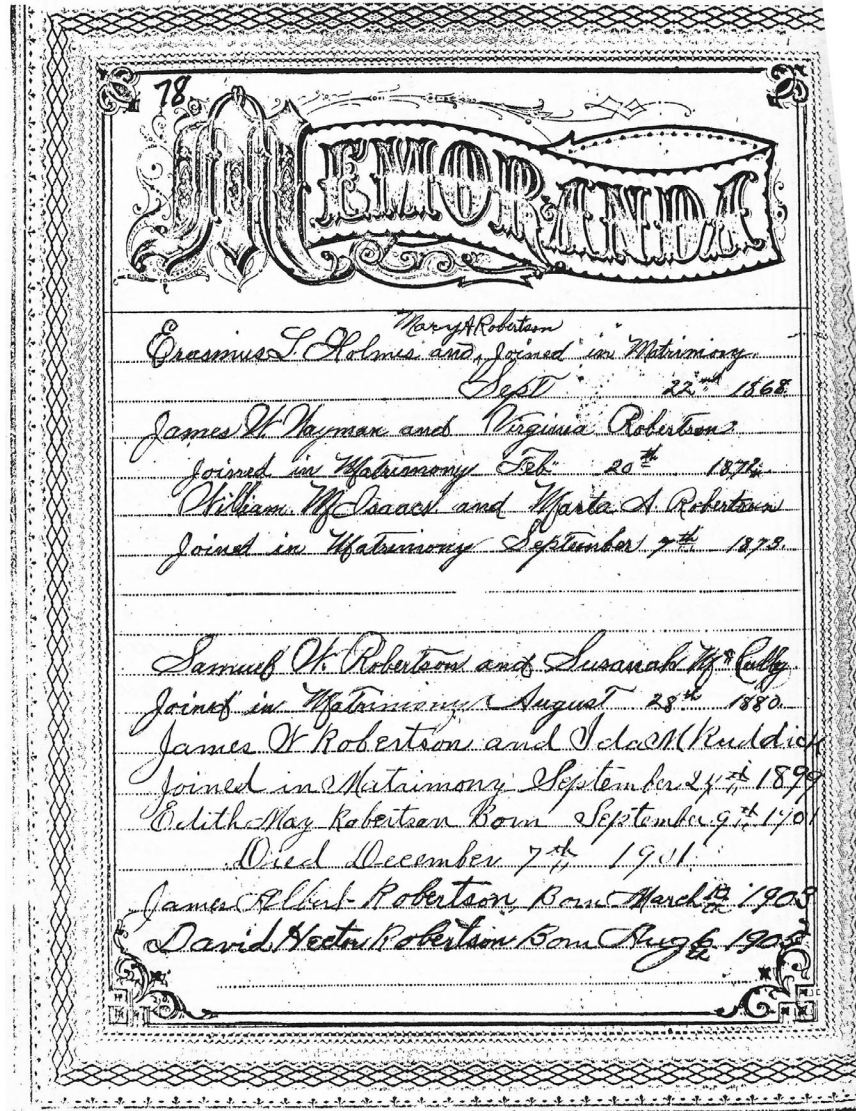 78
MEMORANDA
Mary A Robertson
Erasmus L. Holmes and, Joined in Matrimony
Sept 22nd 1868.
James W. Wayman and Virginia Robertson
Joined in Matrimony Feb. 20th
William McIsaacs and Marta A Robertson
Joined in Matrimony September 7th 1873.
Samuel W. Robertson and Susanah McCully
Joined in Matrimony August 28th 1880.
James W Robertson and Ida M Ruddick
Joined in Matrimony September 24th 1899
Edith May Robertson Born September 9th 1901
Died December 7th 1901
James Albert Robertson Born March 1903
David Hector Robertson Born Aug 6th 1905